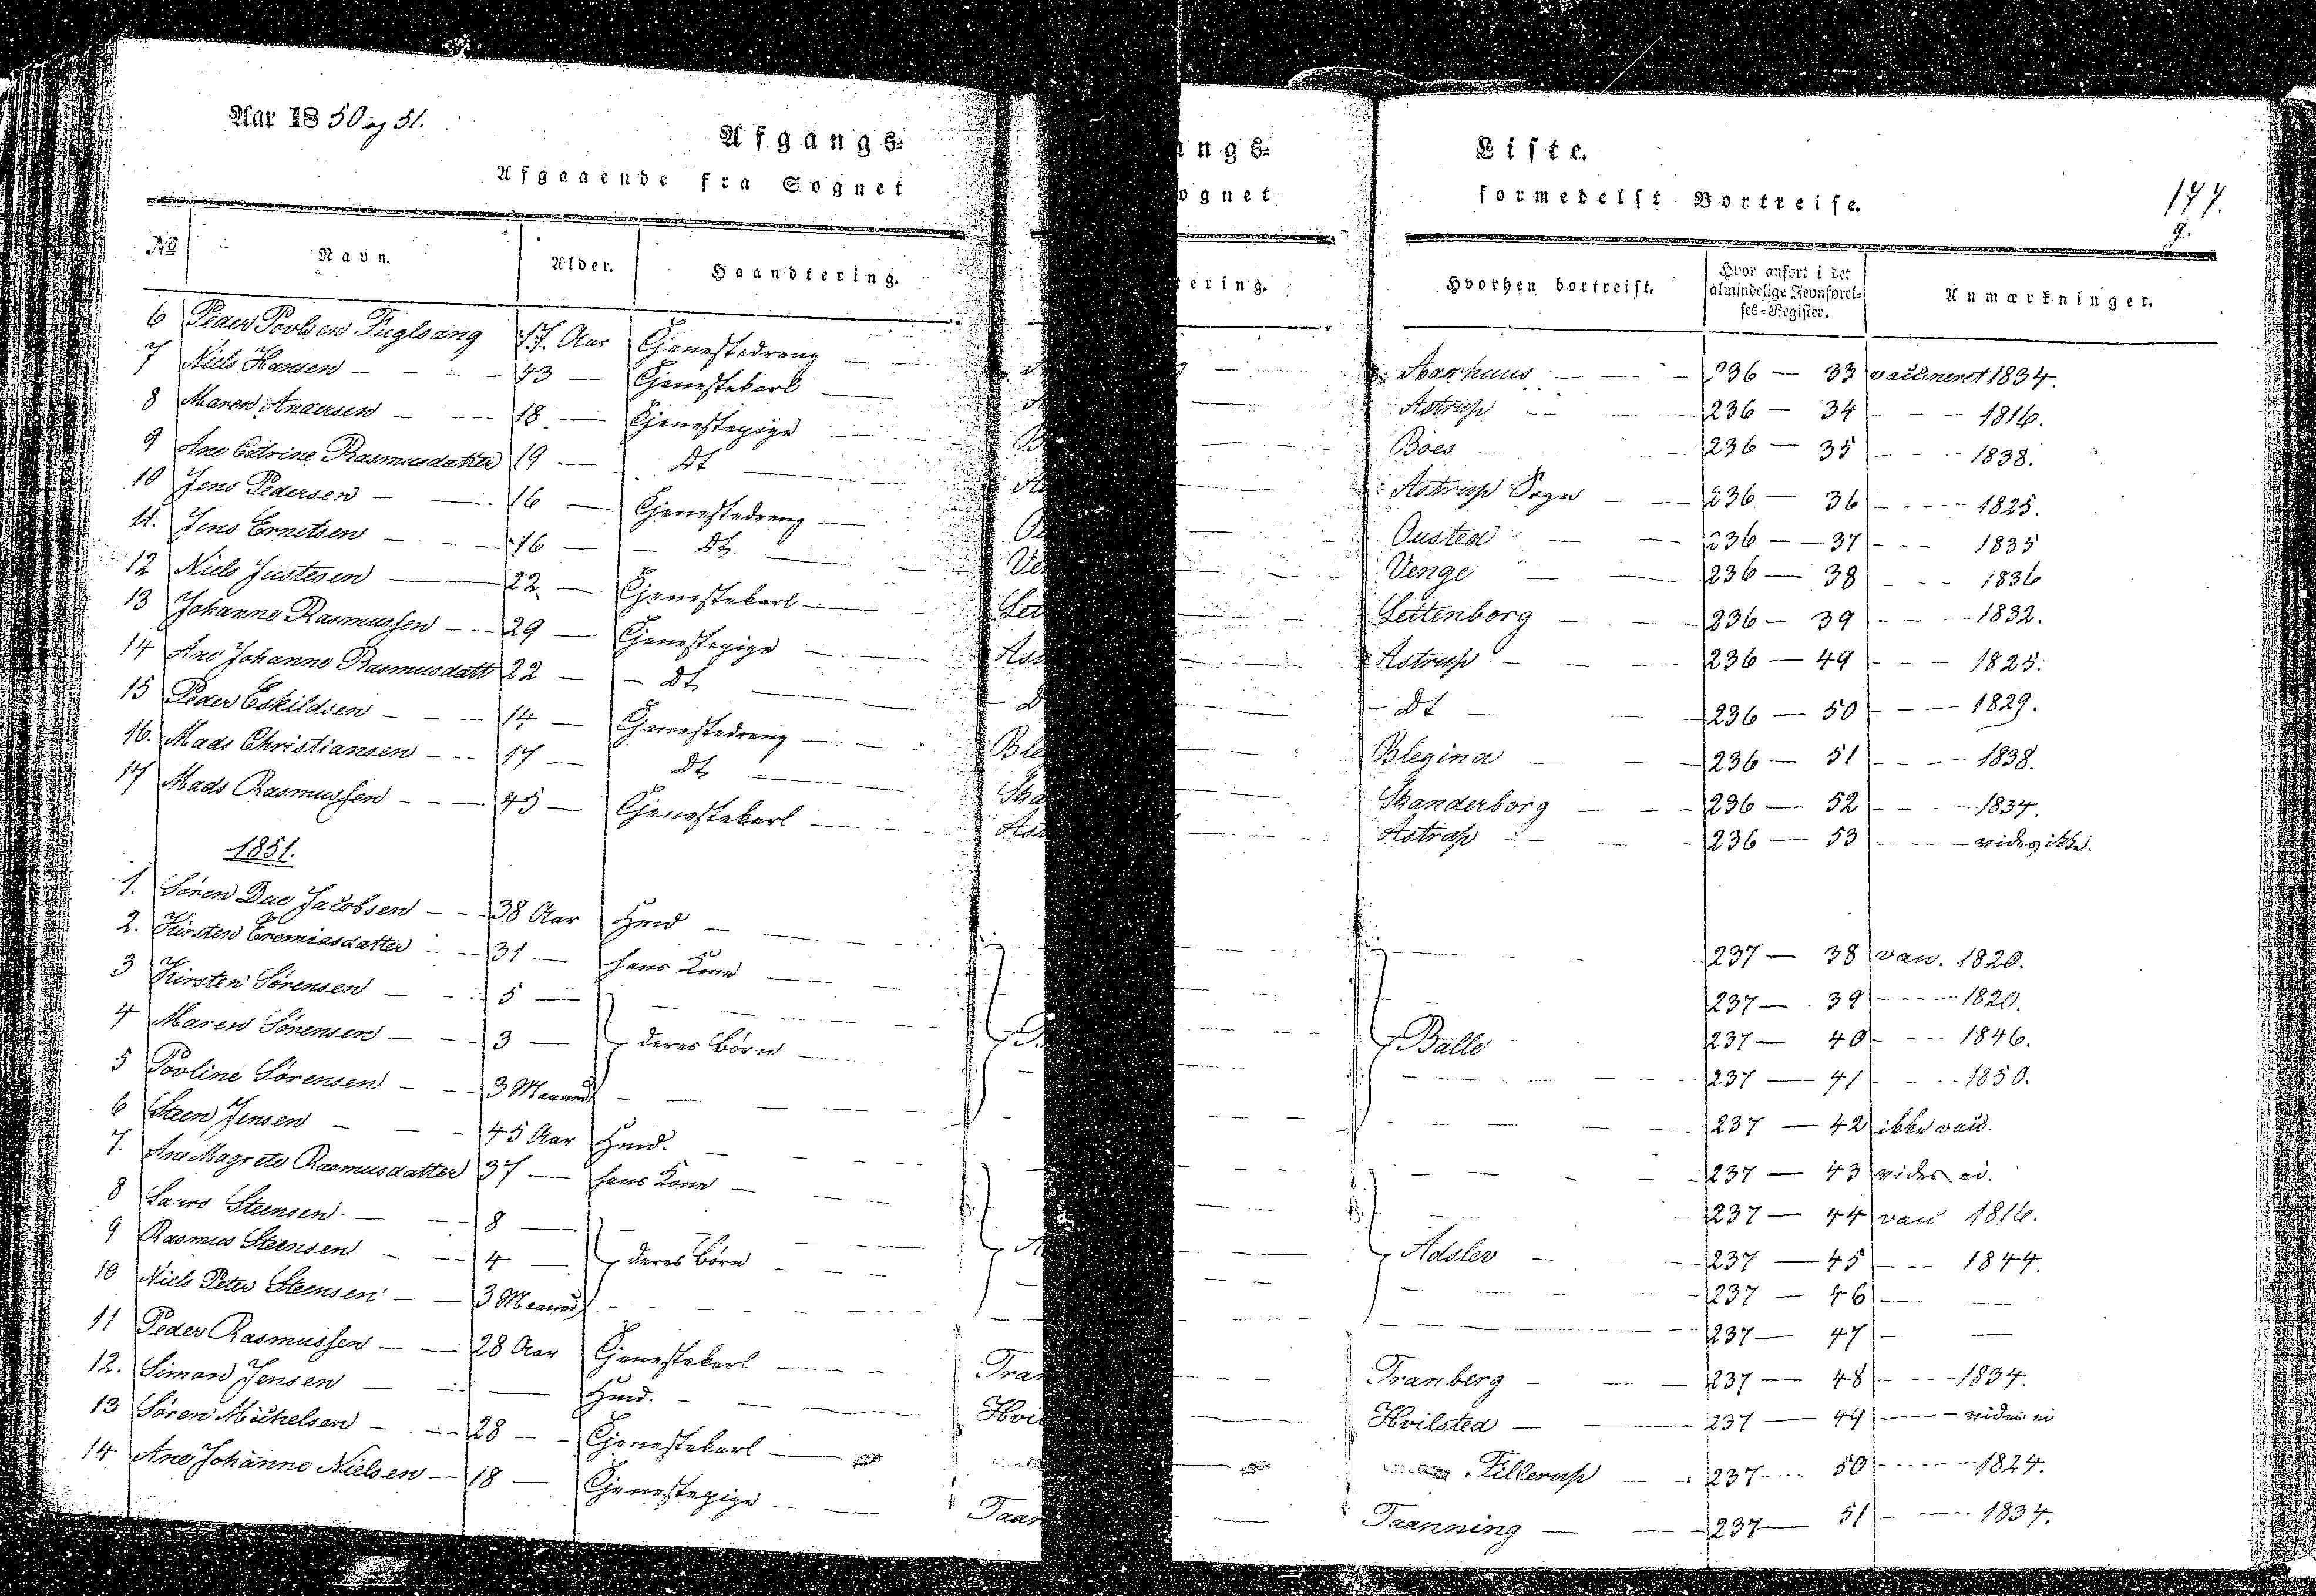 Aar 1850 og 51.
Afgangs-
Liste.
Afgaaende fra Sognet
formedelst Bortreise.
177.
No Navn. Alder. Haandtering. Hvorhen bortreist. Hvor anført i det almindelige Jevnførel-ses-Register. Anmærkninger.
6 Peder Povlsen Fuglsang 17 Aar Tjenestedreng — Aarhuus — 236 — 33 vaccineret 1834.
7 Niels Hansen — 43 — Tjenestekarl — Astrup — 236 — 34 — 1816.
8 Maren Andersen — 18 — Tjenestepige — Boes — 236 — 35 — 1838.
9 Ane Catrine Rasmusdatter 19 — Dt — Astrup Sogn — 236 — 36 — 1825.
10 Jens Pedersen — 16 — Tjenestedreng — Ousted — 236 — 37 — 1835
11. Jens Ernetsen — 16 — Dt — Venge — 236 — 38 — 1836
12 Niels Justesen — 22 — Tjenestekarl — Lettenborg — 236 — 39 — 1832.
13 Johanne Rasmussen — 29 — Tjenestepige — Astrup — 236 — 49 — 1825.
14 Ane Johanne Rasmusdatt 22 — Dt — Dt — 236 — 50 — 1829.
15 Peder Eskildsen — 14 — Tjenestedreng — Blegind — 236 — 51 — 1838.
16. Mads Christiansen — 17 — Dt — Skanderborg — 236 — 52 — 1834.
17 Mads Rasmussen — 45 — Tjenestekarl — Astrup — 236 — 53 — vides ikke.
1851.
1. Søren Due Jacobsen — 38 Aar Hmd — 237 — 38 vacc. 1820.
2. Kirsten Eremiasdatter — 31 — hans Kone — 237 — 39 — 1820.
3 Kirsten Sørensen — 5 — 237 — 40 — 1846.
4 Maren Sørensen — 3 — deres Børn — Balle — 237 — 41 — 1850.
5 Povline Sørensen — 3 Maaned — 237 — 42 ikke vacc.
6 Steen Jensen — 45 Aar Hmd. — 237 — 43 vides ei.
7. Ane Magrete Rasmusdatter 37 — hans Kone — 237 — 44 vacc 1816.
8 Laurs Steensen — 8 — 237 — 45 — 1844.
9 Rasmus Steensen — 4 — deres Børn — Adslev — 237 — 46 —
10 Niels Peter Steensen — 3 Maaned — 237 — 47 —
11 Peder Rasmussen — 28 Aar Tjenestekarl — Tranberg — 237 — 48 — 1834.
12. Simon Jensen — Hmd. — Hvilsted — 237 — 49 — vides ei
13 Søren Michelsen — 28 — Tjenestekarl — Fillerup — 237 — 50 — 1824.
14 Ane Johanne Nielsen — 18 — Tjenestepige — Taanning — 237 — 51 — 1834.